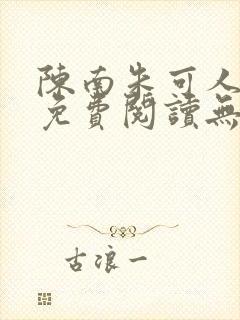 陳南朱可人
免費閱讀無
古浪一